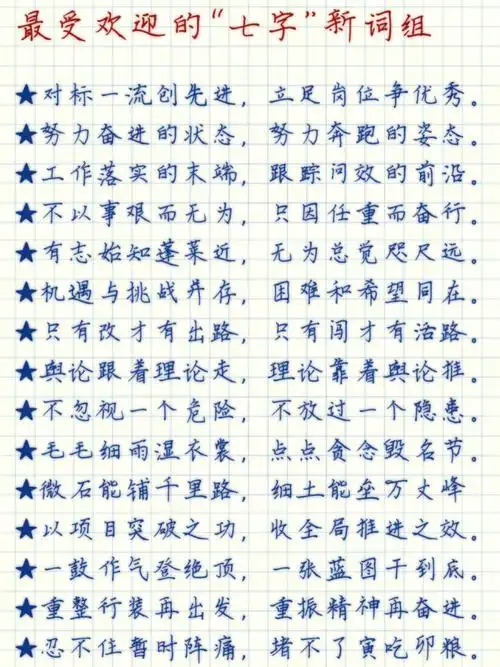 最受欢迎的“七字”新词组
★对标一流创先进，立足岗位争优秀。
★努力奋进的状态，努力奔跑的姿态。
★工作落实的末端，跟踪问效的前沿。
★不以事艰而无为，只因任重而奋行。
★有志始知蓬莱近，无为总觉咫尺远。
★机遇与挑战并存，困难和希望同在。
★只有改才有出路，只有闯才有活路。
★舆论跟着理论走，理论靠着舆论推。
★不忽视一个危险，不放过一个隐患。
★毛毛细雨湿衣裳，点点贪念毁名节。
★微石能铺千里路，细土能垒万丈峰
★以项目突破之功，收全局推进之效。
★一鼓作气登绝顶，一张蓝图干到底。
★重整行装再出发，重振精神再奋进。
★忍不住暂时阵痛，堵不了寅吃卯粮。